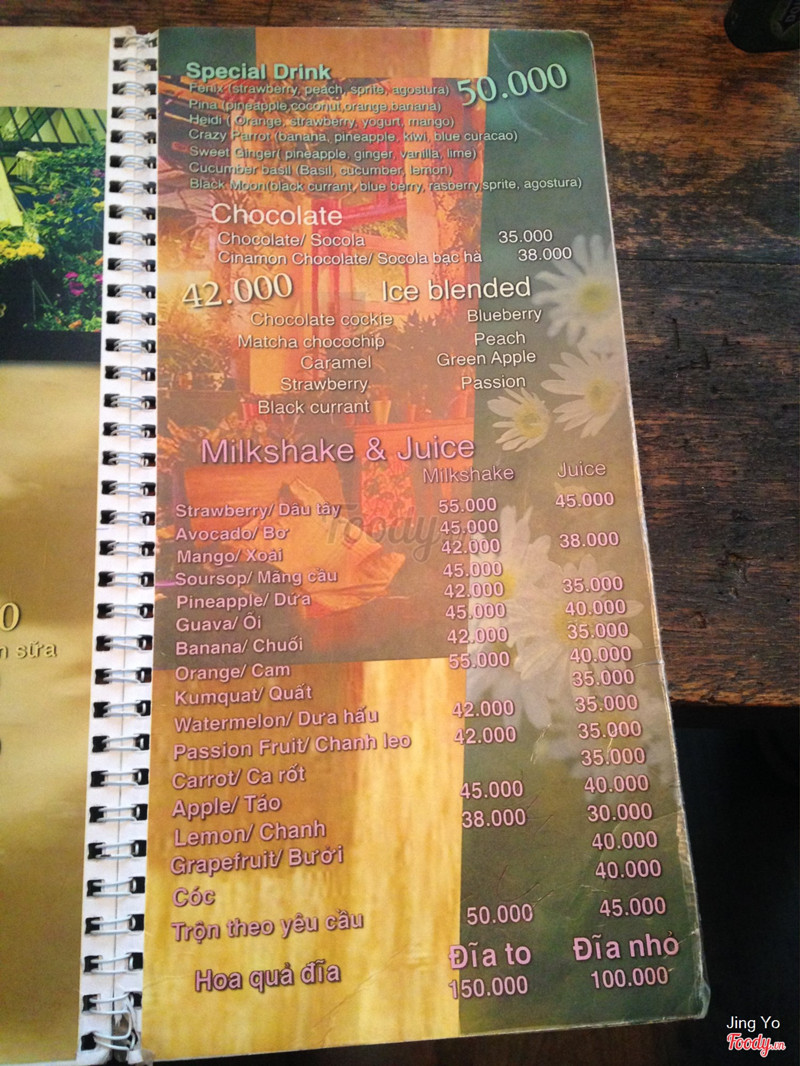 Special Drink
50.000
Fenix (strawberry, peach, sprite, agostura)
Pina (pineapple,coconut,orange,banana)
Heidi ( Orange, strawberry, yogurt, mango)
Crazy Parrot (banana, pineapple, kiwi, blue curacao)
Sweet Ginger( pineapple, ginger, vanilla, lime)
Cucumber basil (Basil, cucumber, lemon)
Black Moon(black currant, blue berry, rasberry,sprite, agostura)
Chocolate
Chocolate/ Socola 35.000
Cinamon Chocolate/ Socola bạc hà 38.000
42.000 Ice blended
Chocolate cockie Blueberry
Matcha chocochip Peach
Caramel Green Apple
Strawberry Passion
Black currant
Milkshake & Juice
Milkshake Juice
Strawberry/ Dâu tây 55.000 45.000
Avocado/ Bơ 45.000
Mango/ Xoài 42.000 38.000
Soursop/ Mãng cầu 45.000
Pineapple/ Dứa 42.000 35.000
Guava/ Ổi 45.000 40.000
Banana/ Chuối 42.000 35.000
Orange/ Cam 55.000 40.000
Kumquat/ Quất 35.000
Watermelon/ Dưa hấu 42.000 35.000
Passion Fruit/ Chanh leo 42.000 35.000
Carrot/ Ca rốt 35.000
Apple/ Táo 45.000 40.000
Lemon/ Chanh 38.000 30.000
Grapefruit/ Bưởi 40.000
Cóc 40.000
Trộn theo yêu cầu 50.000 45.000
Đĩa to Đĩa nhỏ
Hoa quả đĩa 150.000 100.000
0
n sữa
Foody
Jing Yo
Foody.vn